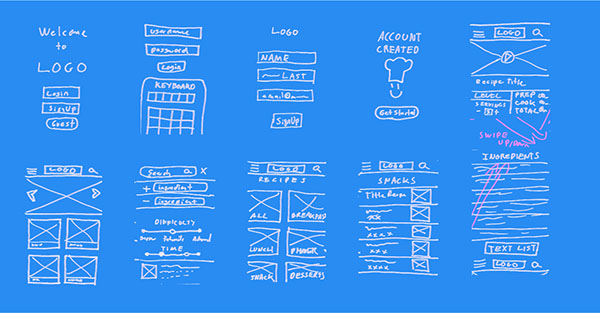 Welcome
to
LOGO
Login
SignUp
Guest
username
password
Login
KEYBOARD
LOGO
NAME
LAST
email@
SignUp
ACCOUNT
CREATED
Get Started
LOGO
Recipe Title
LEVEL
SERVINGS
- 5 +
PREP
COOK
TOTAL
SWIPE
UP/DOWN
INGREDIENTS
TEXT LIST
LOGO
LOGO
Search X
+ Ingredient
- Ingredient
DIFFICULTY
TIME
LOGO
RECIPES
ALL
BREAKFAST
LUNCH
DINNER
SNACK
DESSERTS
LOGO
SNACKS
Title Name
xxx
xxxx
xxxx
xxxx